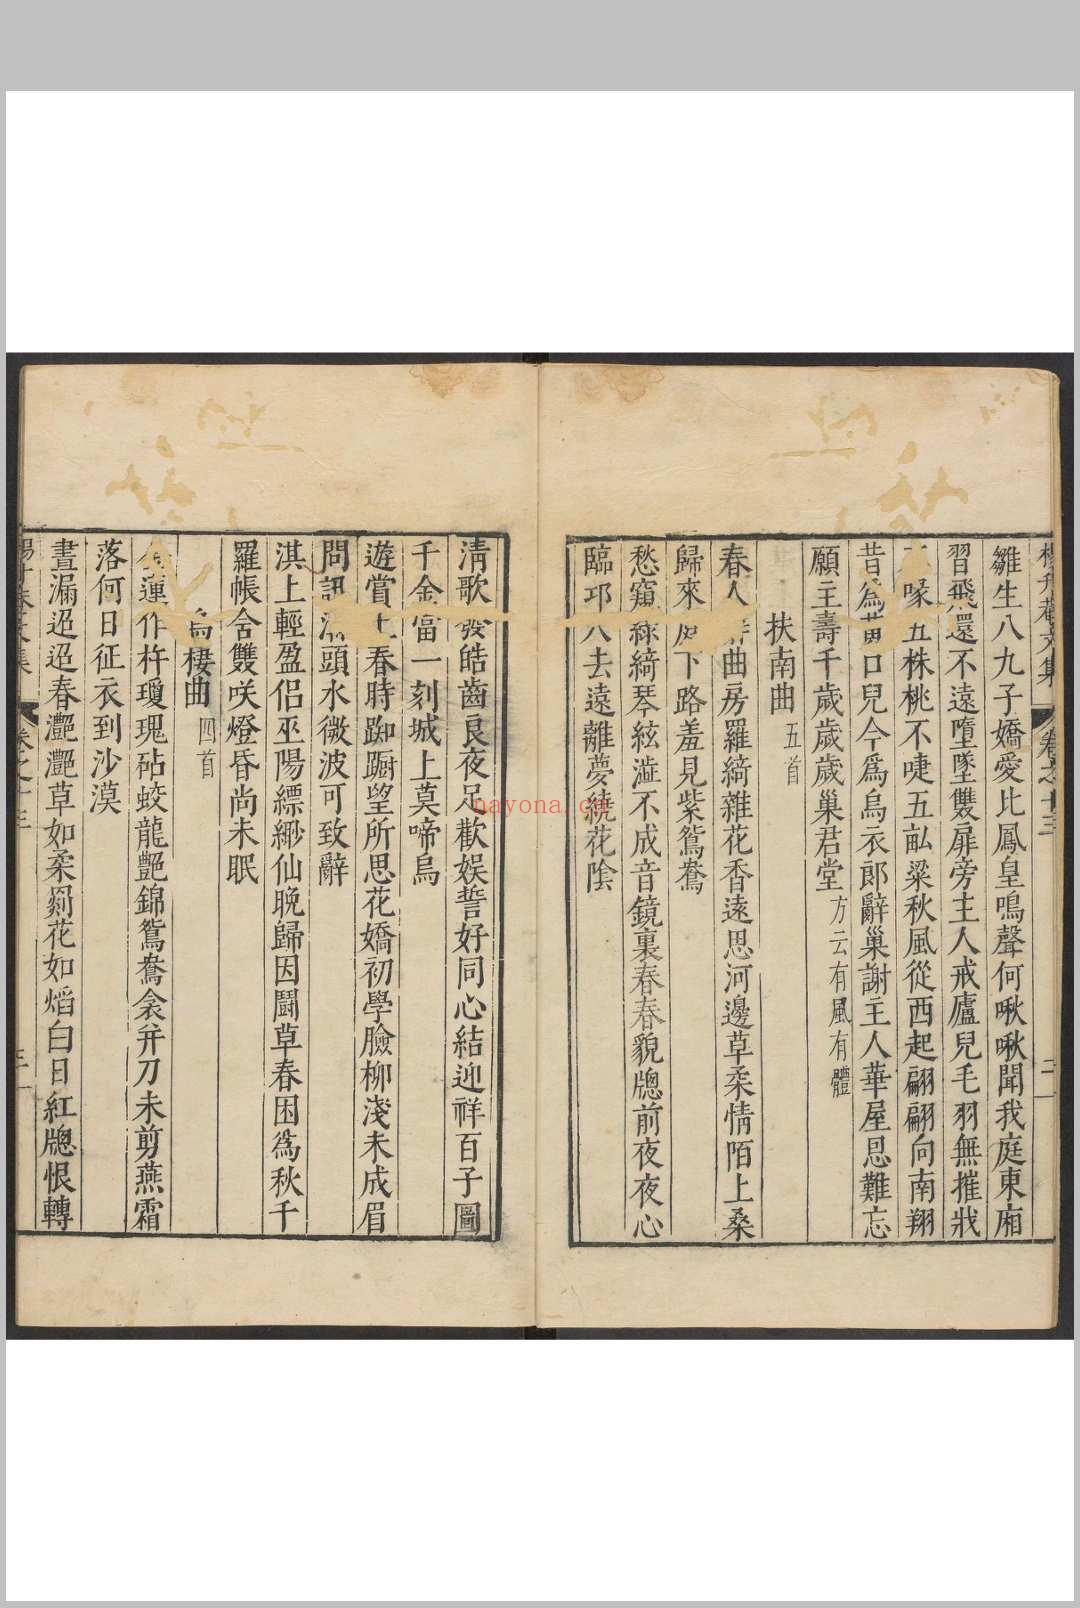 楊升菴文集 卷之十三 二
雛生八九子嬌愛比鳳皇鳴聲何啾啾聞我庭東廂
習飛還不遠墮墜雙扉旁主人戒廬兒毛羽無摧戕
喙五株桃不啑五畆粱秋風從西起翩翩向南翔
昔爲黃口兒今爲烏衣郎辭巢謝主人華屋恩難忘
願主壽千歲歲歲巢君堂方云有風有體
扶南曲五首
春人曲房羅綺雜花香遠思河邊草柔情陌上桑
歸來庭下路羞見紫鴛鴦
愁窺綠綺琴絃澁不成音鏡裏春春貌牎前夜夜心
臨卭人去遠離夢繞花陰
清歌發皓齒良夜足歡娛誓好同心結迎祥百子圖
千金當一刻城上莫啼烏
遊賞上春時踟蹰望所思花嬌初學臉柳淺未成眉
問訊頭水微波可致辭
淇上輕盈侶巫陽縹緲仙晚歸因鬬草春困爲秋千
羅帳含雙咲燈昏尚未眠
烏棲曲四首
蓮作杵瓊瑰砧蛟龍艷錦鴛鴦衾并刀未剪燕霜
落何日征衣到沙漠
晝漏迢迢春灔灔草如柔剪花如熖白日紅牎恨轉
楊升菴文集 卷之十三 三
nayona.cn